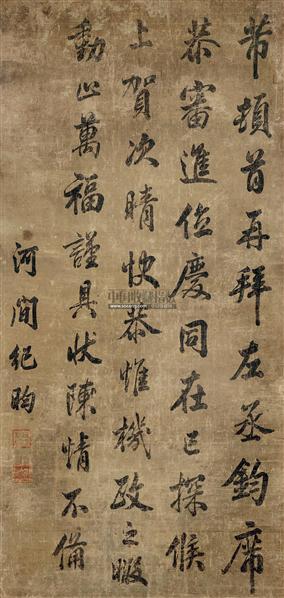 芾頓首再拜左丞鈞席
恭審進位慶同在已探候
上賀次晴快恭惟機政之暇
動止萬福謹具狀陳情不備
河間紀昀